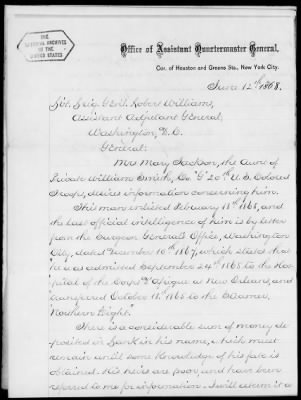 THE
NATIONAL ARCHIVES
OF THE
UNITED STATES
Office of Assistant Quartermaster General,
Cor. of Houston and Greene Sts., New York City.
June 12th 1868.
Bvt. Brig. Genl. Robert Williams,
Assistant Adjutant General,
Washington, D.C.
General:
Mrs Mary Jackson, the Aunt of
Private William Smith, Co "G" 20th U.S. Colored
Troops, desires information concerning him.
This man enlisted February 18th 1865, and
the last official intelligence of him is by letter
from the Surgeon General's Office, Washington
City, dated December 10th 1867, which states that
he was admitted September 24th 1865 to the Hos-
pital of the Corps d'Afrique at New Orleans, and
transferred October 15th 1865 to the Steamer,
"Northern Light."
There is a considerable sum of money de-
posited in bank in his name, which must
remain until some knowledge of his fate is
obtained. His heirs are poor, and have been
referred to me for information. I will esteem it a